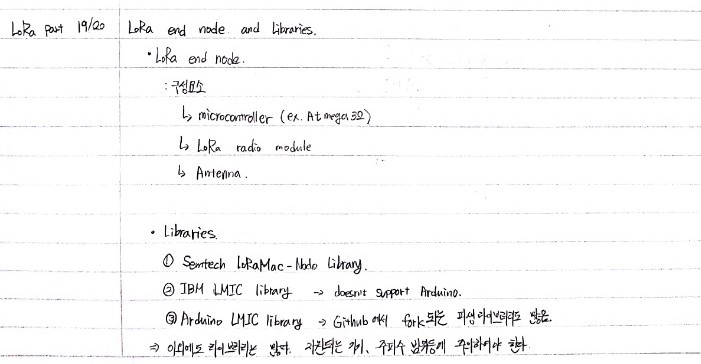 LoRa part 19/20 LoRa end node and Libraries.
• LoRa end node.
: 구성요소
↳ microcontroller (ex. Atmega32)
↳ LoRa radio module
↳ Antenna.
• Libraries.
① Semtech LoRaMac-Node Library.
② IBM LMIC library → doesn't support Arduino.
③ Arduino LMIC library → Github에서 fork되는 파생라이브러리도 많음.
⇒ 이외에도 라이브러리는 많다. 지원되는 기기, 주파수 범위등에 주의하여야 한다.